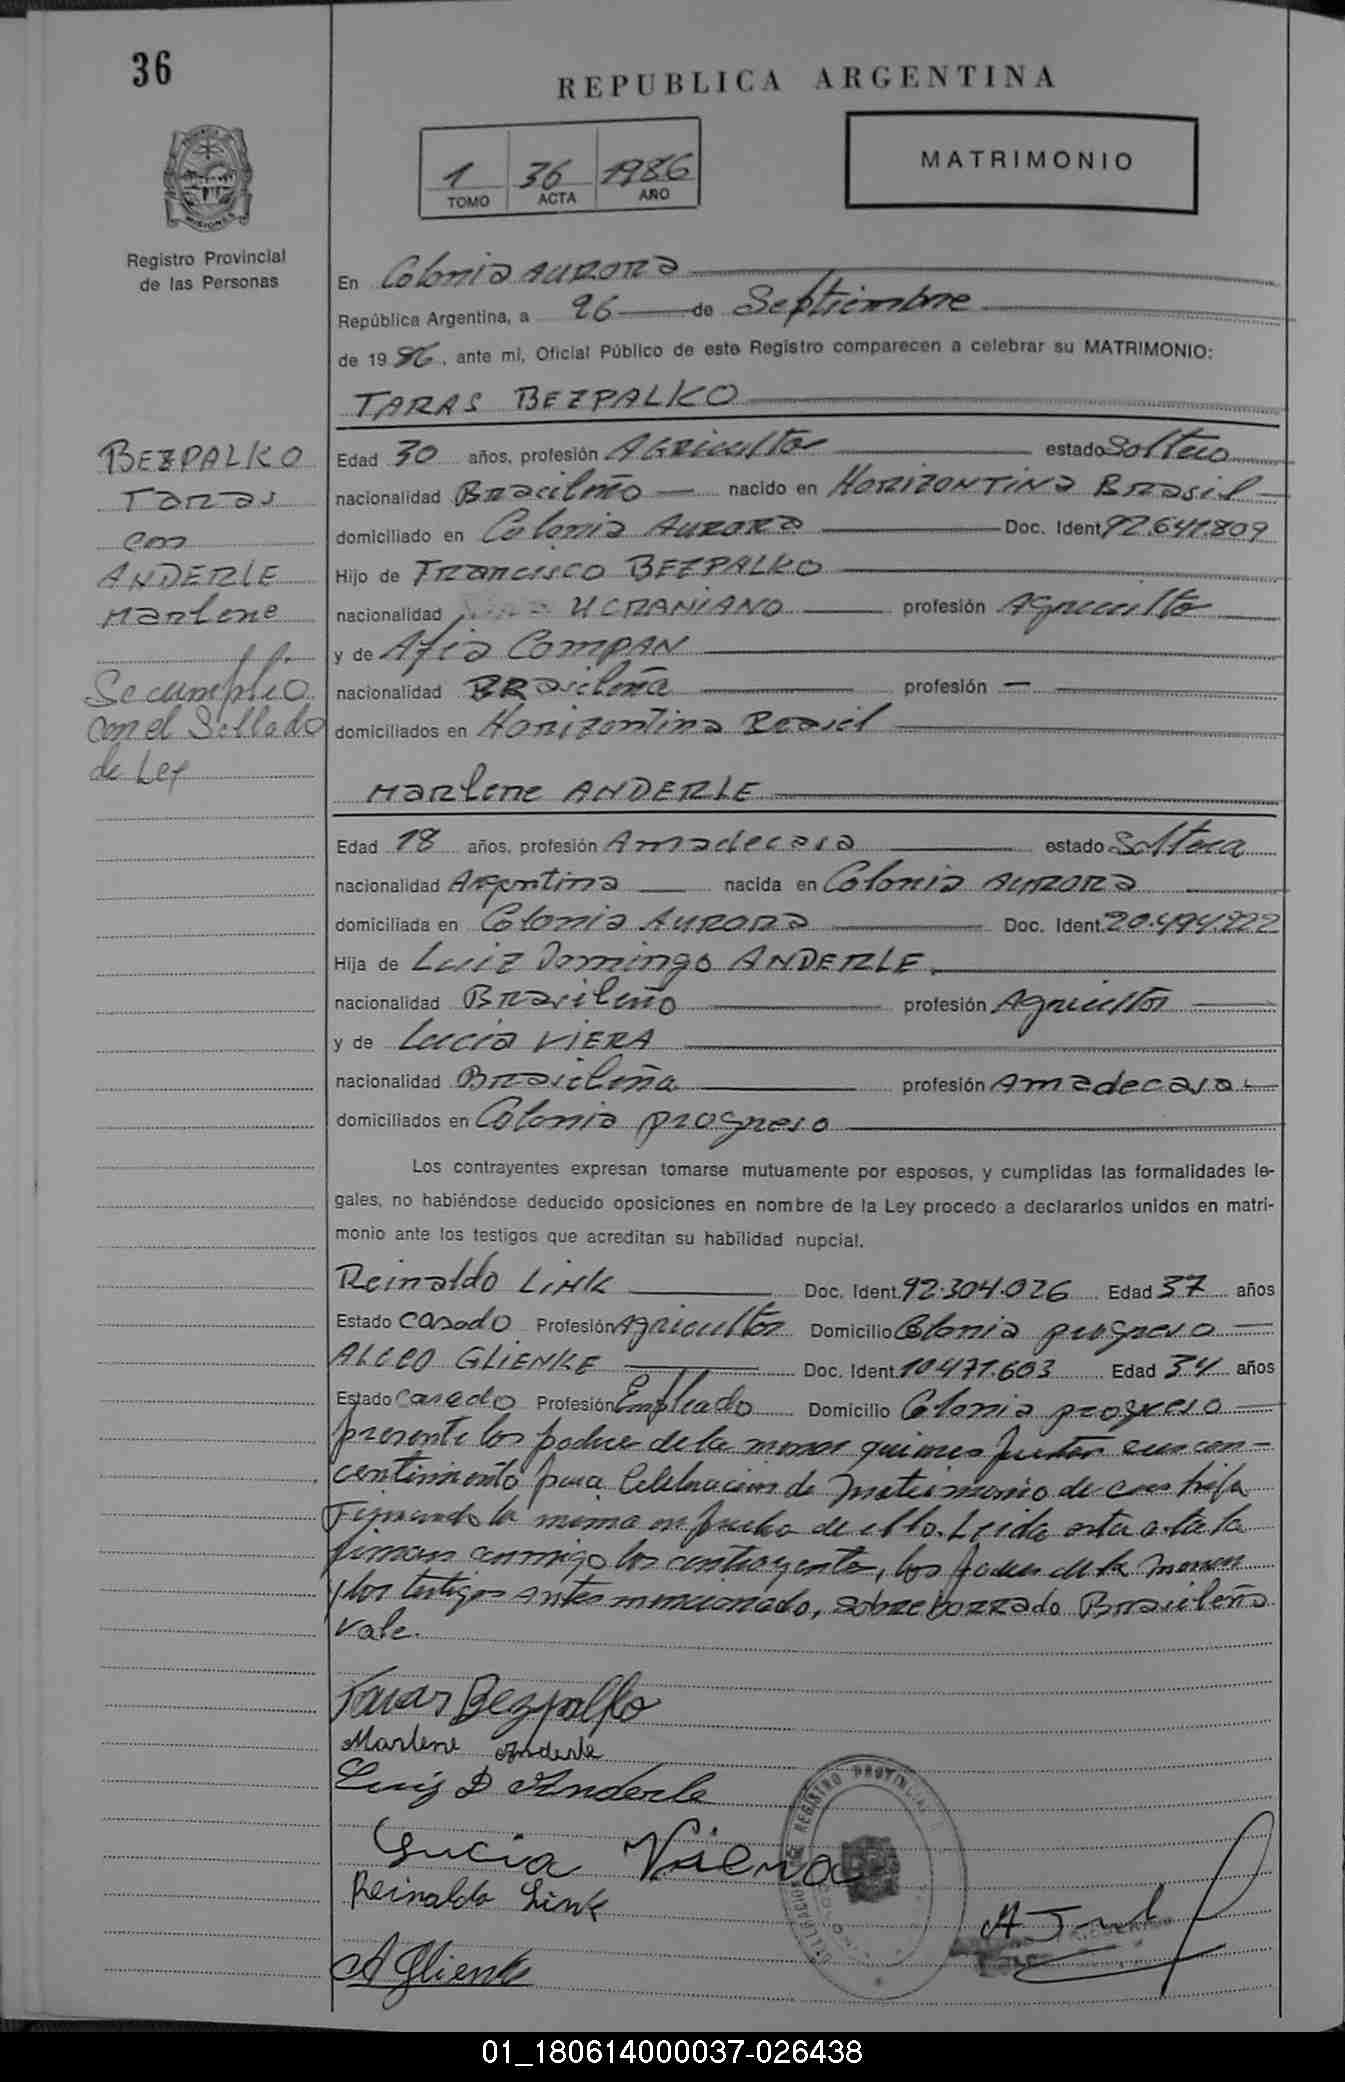 36
REPUBLICA ARGENTINA
1 36 1986
TOMO ACTA AÑO
MATRIMONIO
MISIONES
Registro Provincial
de las Personas
En Colonia AURORA
República Argentina, a 26 de Septiembre
de 1986, ante mí, Oficial Público de este Registro comparecen a celebrar su MATRIMONIO:
TARAS BEZPALKO
BEZPALKO
Taras
con
ANDERLE
Marlene
Se cumplió
con el Sellado
de Ley
Edad 30 años, profesión Agricultor estado Soltero
nacionalidad Brasileño nacido en HORIZONTINA Brasil
domiciliado en Colonia AURORA Doc. Ident. 92.641.809
Hijo de Francisco BEZPALKO
nacionalidad UCRANIANO profesión Agricultor
y de Afia COMPAN
nacionalidad BRasileña profesión —
domiciliados en Horizontina Brasil
Marlene ANDERLE
Edad 18 años, profesión Amadecasa estado Soltera
nacionalidad Argentina nacida en Colonia AURORA
domiciliada en Colonia AURORA Doc. Ident. 20.494.222
Hija de Luiz Domingo ANDERLE
nacionalidad Brasileño profesión Agricultor
y de Lucia VIERA
nacionalidad Brasileña profesión Amadecasa
domiciliados en Colonia progreso
Los contrayentes expresan tomarse mutuamente por esposos, y cumplidas las formalidades le-
gales, no habiéndose deducido oposiciones en nombre de la Ley procedo a declararlos unidos en matri-
monio ante los testigos que acreditan su habilidad nupcial.
Reinaldo LINK Doc. Ident. 92.304.026 Edad 37 años
Estado casado Profesión Agricultor Domicilio Colonia progreso
ALCEO GLIENKE Doc. Ident. 10.471.603 Edad 34 años
Estado casado Profesión Empleado Domicilio Colonia progreso
presente los padres de la menor quienes prestan su con-
centimiento para Celebracion de Matrimonio de su hija
Firmando la misma en prueba de ello. Leida esta acta la
firman conmigo los contrayentes, los padres de la menor
y los testigos antes mencionado, sobre borrado Brasileño
vale.
Taras Bezpalko
Marlene Anderle
Luiz D Anderle
Lucia Viera
Reinaldo Link
A Glienke
REGISTRO PROVINCIAL
01_180614000037-026438